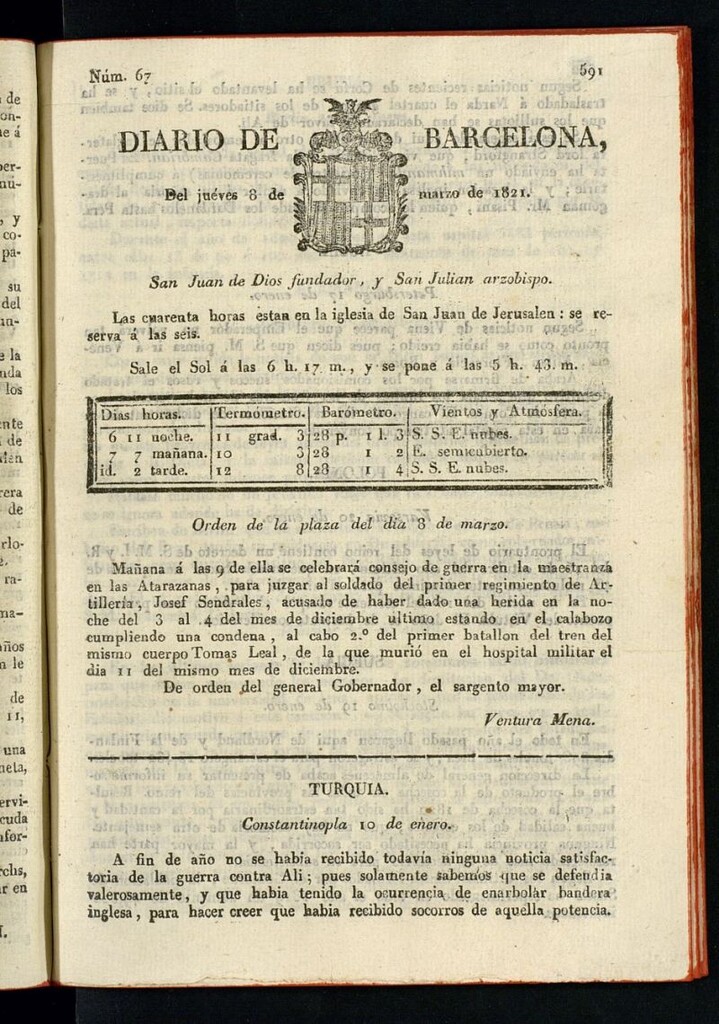 Núm. 67 591
DIARIO DE BARCELONA,
Del juéves 8 de marzo de 1821.
San Juan de Dios fundador, y San Julian arzobispo.
Las cuarenta horas estan en la iglesia de San Juan de Jerusalen: se re-
serva á las seis.
Sale el Sol á las 6 h. 17 m., y se pone á las 5 h. 43. m.
Dias horas. Termómetro. Barómetro. Vientos y Atmósfera.
6 11 noche. 11 grad. 3 28 p. 1 l. 3 S. S. E. nubes.
7 7 mañana. 10 3 28 1 2 E. semicubierto.
id. 2 tarde. 12 8 28 1 4 S. S. E. nubes.
Orden de la plaza del dia 8 de marzo.
Mañana á las 9 de ella se celebrará consejo de guerra en la maestranza
en las Atarazanas, para juzgar al soldado del primer regimiento de Ar-
tillería, Josef Sendrales, acusado de haber dado una herida en la no-
che del 3 al 4 del mes de diciembre ultimo estando en el calabozo
cumpliendo una condena, al cabo 2.º del primer batallon del tren del
mismo cuerpo Tomas Leal, de la que murió en el hospital militar el
dia 11 del mismo mes de diciembre.
De orden del general Gobernador, el sargento mayor.
Ventura Mena.
TURQUIA.
Constantinopla 10 de enero.
A fin de año no se habia recibido todavía ninguna noticia satisfac-
toria de la guerra contra Ali; pues solamente sabemos que se defendia
valerosamente, y que habia tenido la ocurrencia de enarbolar bandera
inglesa, para hacer creer que habia recibido socorros de aquella potencia.